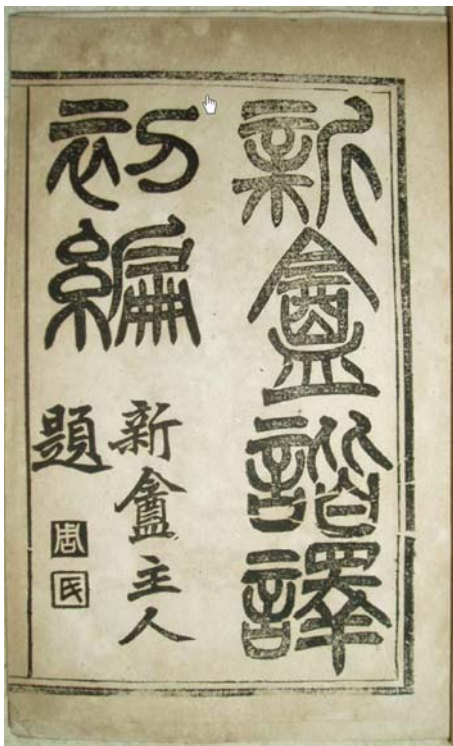 新盦諧譯
初編
新盦主人
題
周氏